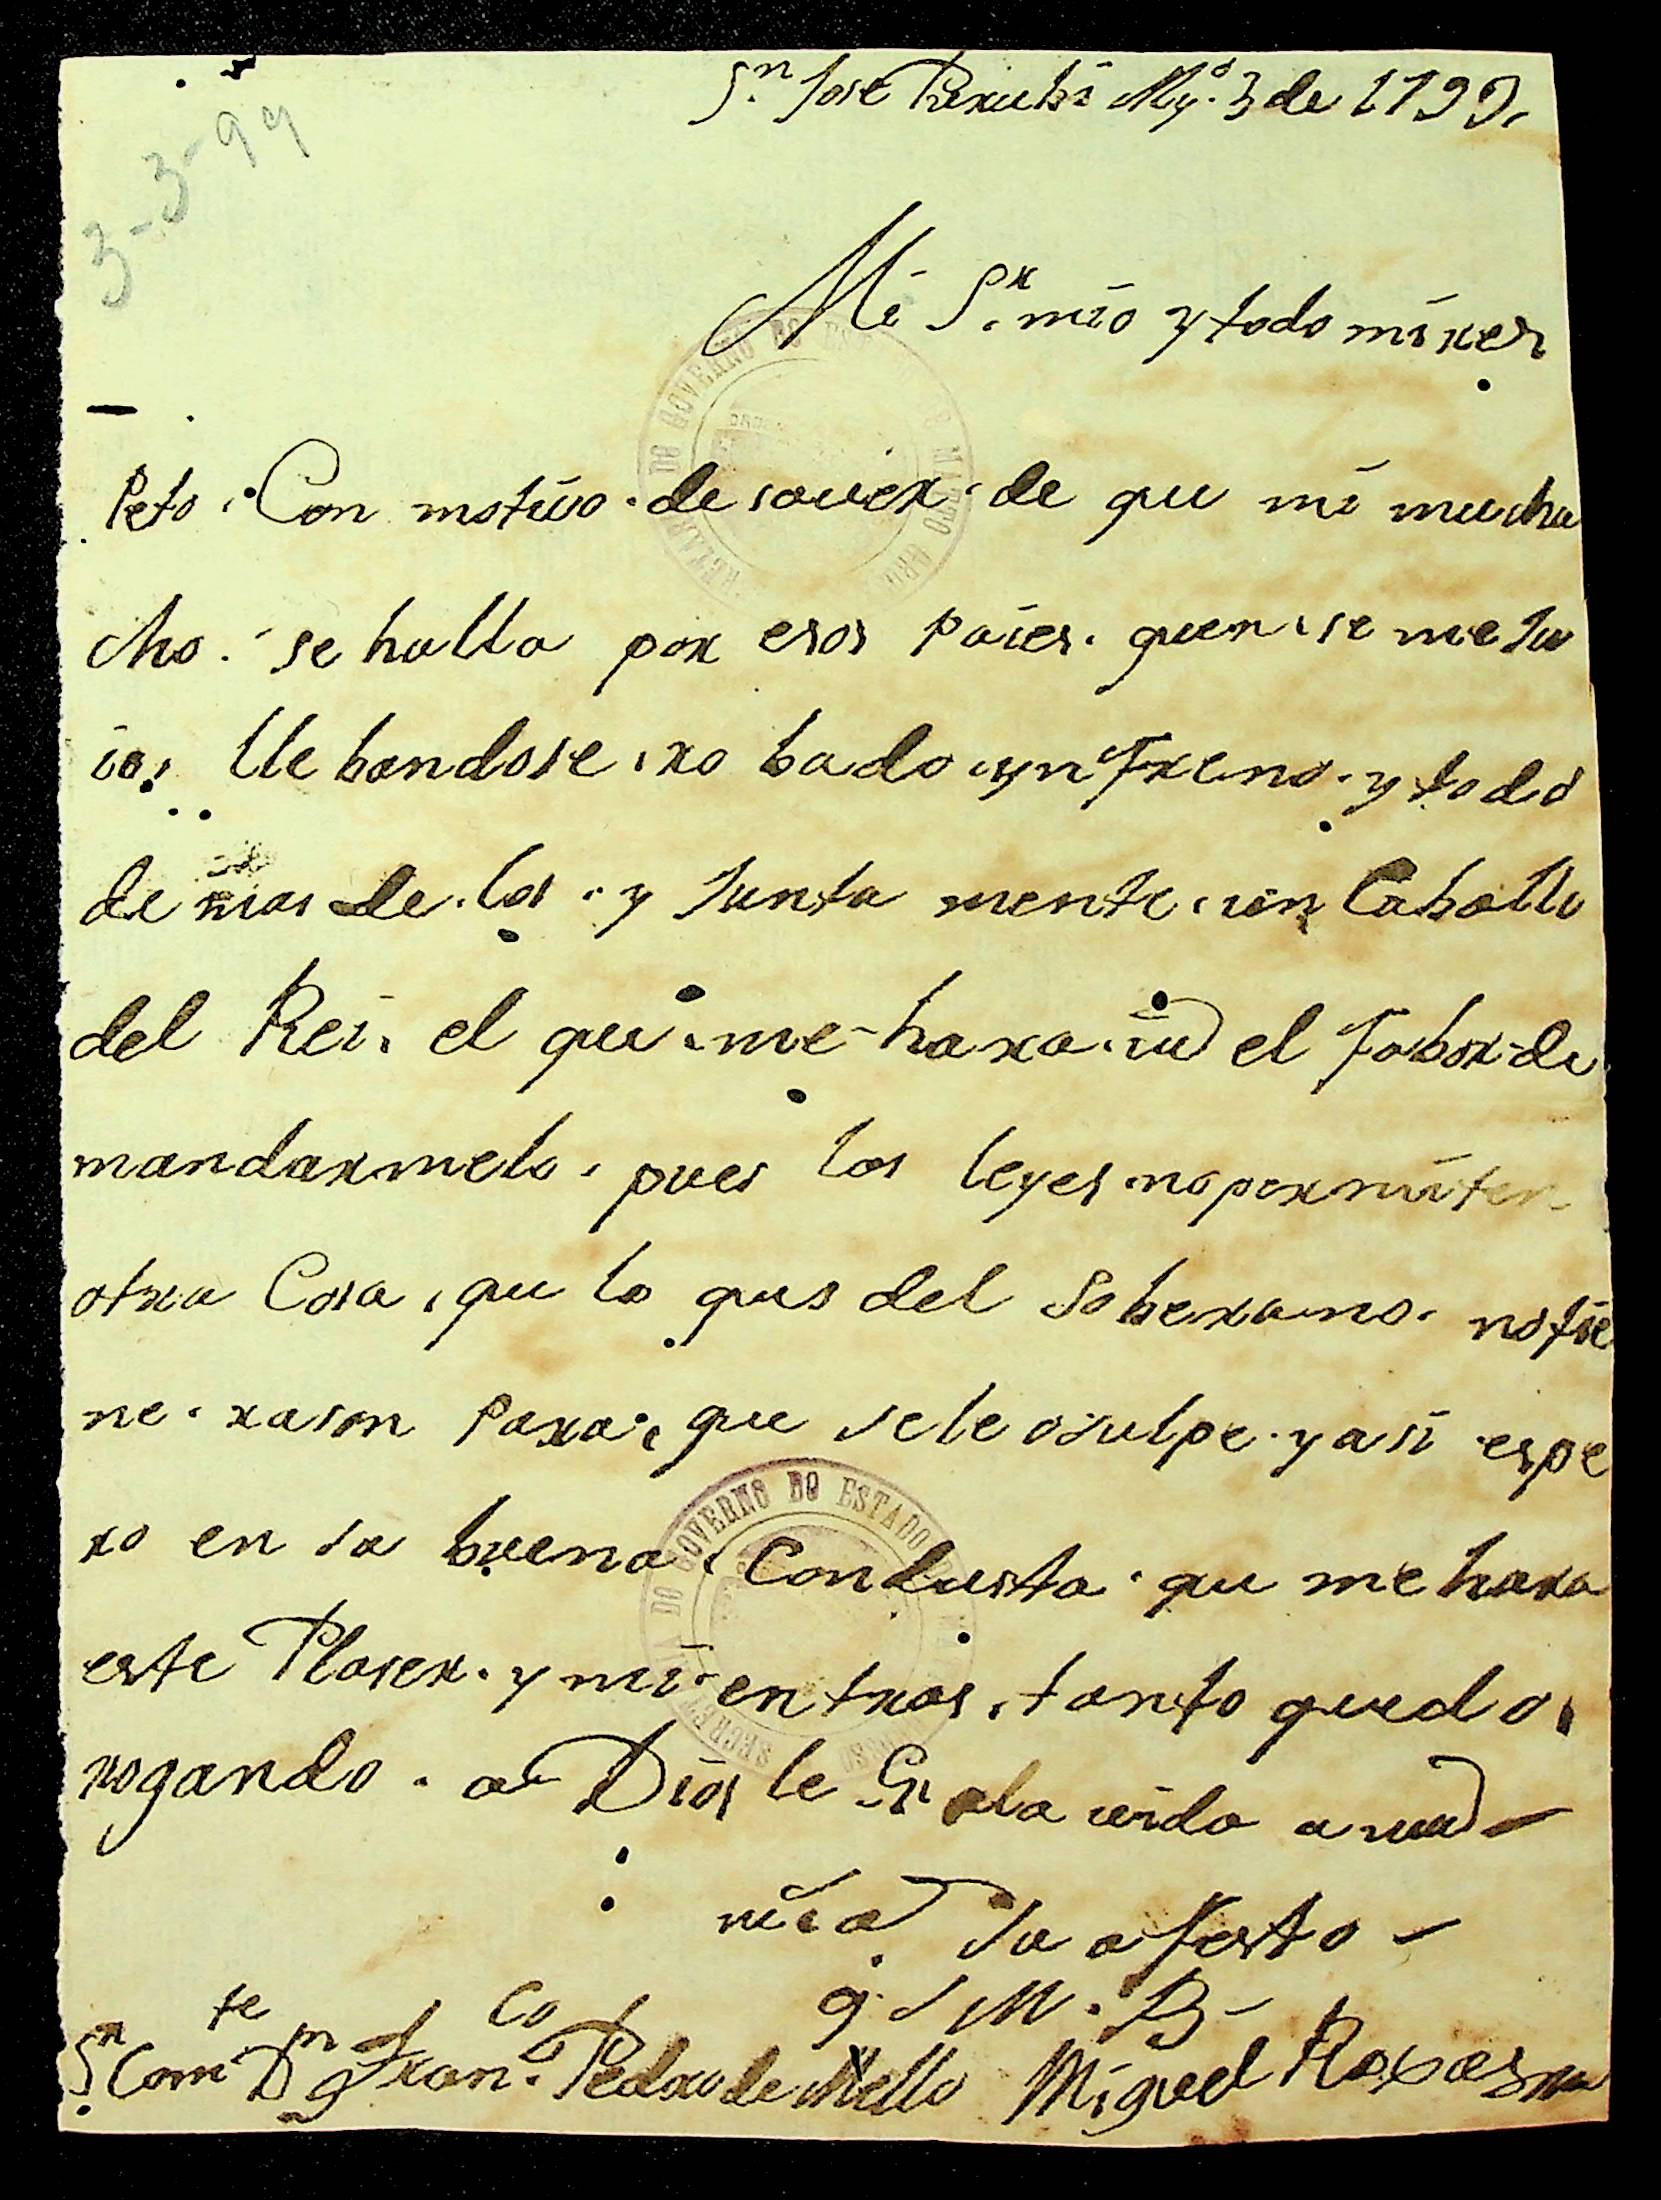 S.n Jose Buxubi My.o 3 de 1799.
3-3-99
Mi S.r mio y todo mi res
peto. Con motivo de saver de que mi mucha
cho. se halla por esos paises. quen se me hu
io. llebandose robado yn Freno y todo
de mas de los y Junta mente un Caballo
del Rei. el que me hara vd el Fabor de
mandarmelo. pues las leyes no permiten
otra Cosa, que lo que es del Soberano. no tie
ne rason para que se le osulpe y asi espe
ro en su buena Condusta que me hara
este Plaser. y mientras tanto quedo
rogando a Dios le Gr. la vida a vmd
su afesto
q. S M. B
S.r Com.te D.n Fran.co Pedro de Mello Miguel Roxas
SECRETARIA DO GOVERNO DO ESTADO DE MATTO GROSSO
SECRETARIA DO GOVERNO DO ESTADO DE MATTO GROSSO